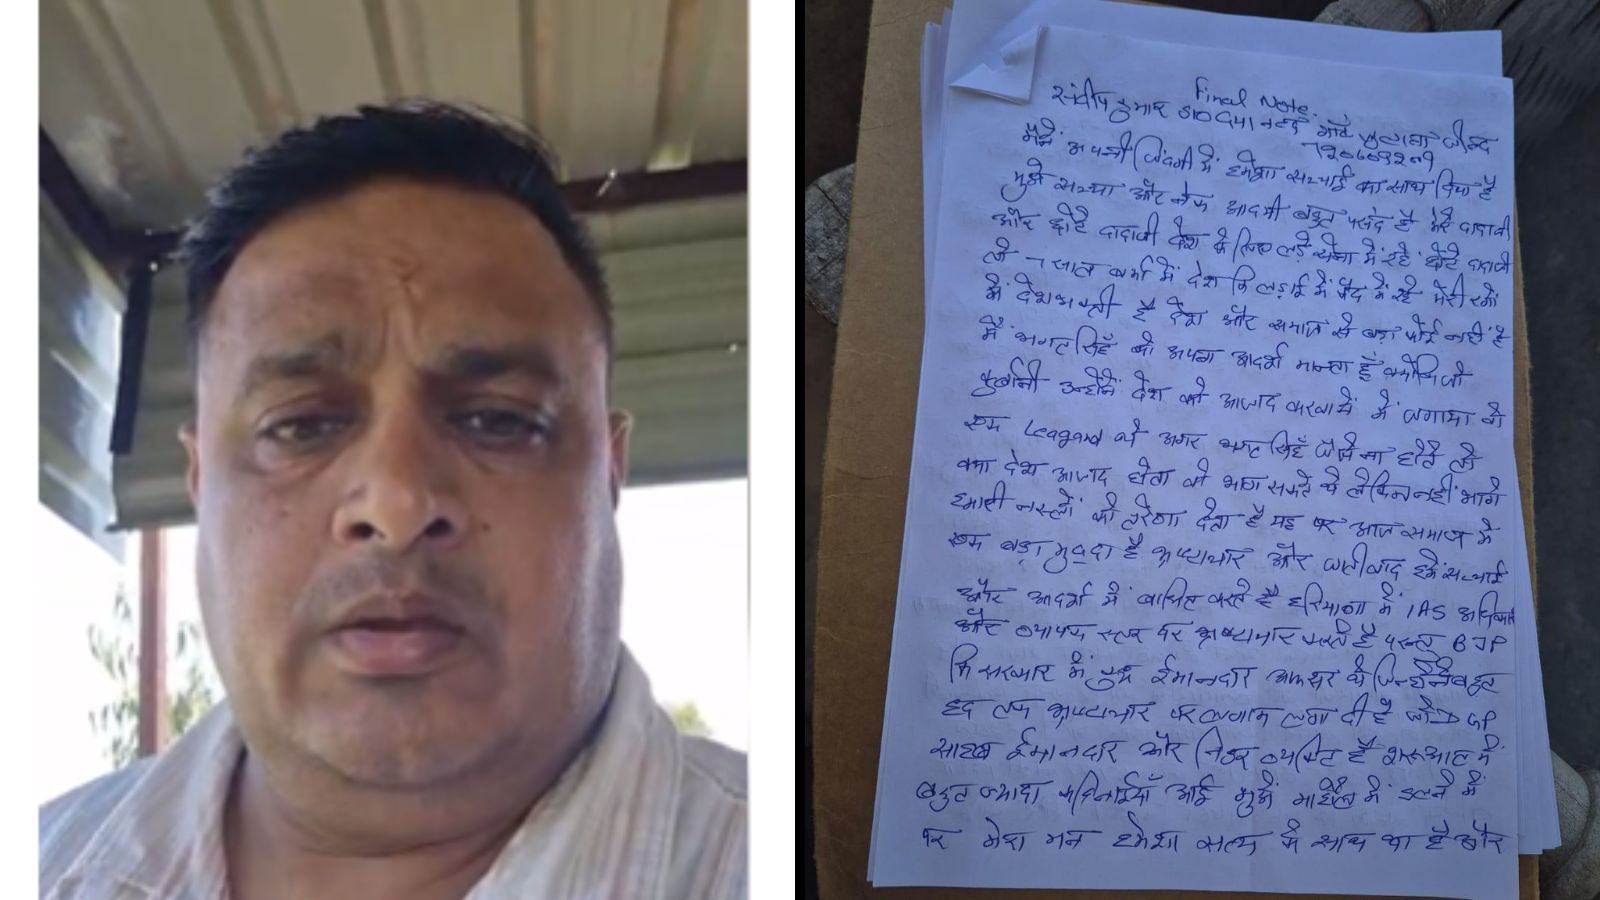 Final Note
संदीप कुमार S/O दयानन्द गाँव जुलाना जीन्द
मैंने अपनी जिंदगी में हमेशा सच्चाई का साथ दिया है
मुझे सच्चा और नेक आदमी बहुत पसंद है मेरे दादाजी
और छोटे दादाजी देश के लिए लड़े सेना में रहे छोटे दादाजी
तो 7 साल बर्मा में देश कि लड़ाई में कैद में रहे मेरी रगों
में देशभक्ती है देश और समाज से बड़ा कोई नहीं है
मैं भगत सिहँ को अपना आदर्श मानता हूँ क्योंकि जो
कुर्बानी उन्होंने देश को आजाद करवाने में लगाया वो
एक अगर भगत सिहँ जैसे ना होते तो
क्या देश आजाद होता वो भाग सकते थे लेकिन नहीं भागे
हमारी नस्लों को प्रेरणा देता है यह पर आज समाज में
एक बड़ा मुद्दा है भ्रष्टाचार और जातीवाद हमें सच्चाई
और आदर्श में बाधित करते है हरियाणा में IAS अधिकारी
और व्यापक स्तर पर भ्रष्टाचार करते है परन्तु BJP
कि सरकार में कुछ ईमानदार अफसर थे जिन्होंने बहुत
हद तक भ्रष्टाचार पर लगाम लगा दी है
साहब ईमानदार और निडर व्यक्ति है शुरूआत में
बहुत ज्यादा कठिनाईयाँ आई मुझे माहौल में ढलने में
पर मेरा मन हमेशा सत्य के साथ था है और